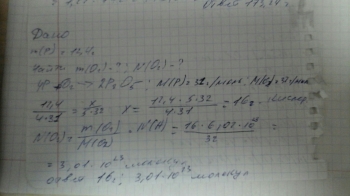 Дано
m(P) = 12,4г
Найти m(O₂)-?; N(O₂)-?
4P O₂ → 2P₂O₅; M(P)=31г/моль
12,4/4·31 = x/5·32 x = 12,4·5·32/4·31 = 16г
N(O₂) = m(O₂)/M(O₂) · N(A) = 16·6,02·10²³/32 =
= 3,01·10²³ молекул
ответ 16г; 3,01·10²³ молекул